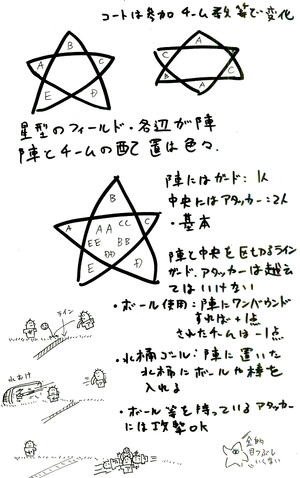 コートは参加チーム数等で変化
B
A C
E D
A
C B
A C
星型のフィールド・各辺が陣
陣とチームの配置は色々.
B
A C
AA CC
EE BB
DD
E D
陣にはガード：1人
中央にはアタッカー：2人
・基本
陣と中央を区切るライン
ガード、アタッカーは越え
てはいけない
・ボール使用：陣にワンバウンド
すれば+1点
されたチームは-1点
・水桶ゴール：陣に置いた
水桶にボールや棒を
入れる
・ボール等を持っているアタッカー
には攻撃OK
ライン
水おけ
金的
目つぶし
いくない